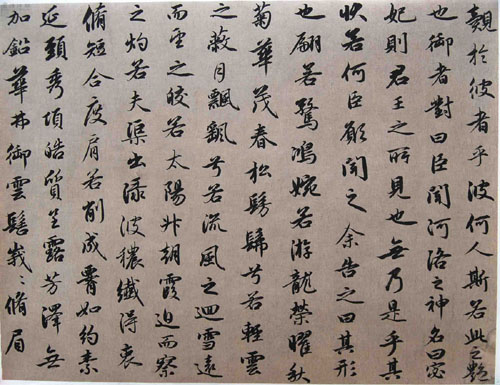 覿於彼者乎彼何人斯若此之豔
也御者對曰臣聞河洛之神名曰宓
妃則君王之所見也無乃是乎其
狀若何臣願聞之余告之曰其形
也翩若驚鴻婉若游龍榮曜秋
菊華茂春松髣髴兮若輕雲
之蔽月飄颻兮若流風之迴雪遠
而望之皎若太陽升朝霞迫而察
之灼若夫渠出淥波穠纖得衷
脩短合度肩若削成腰如約素
延頸秀項皓質呈露芳澤無
加鉛華弗御雲髻峩〻脩眉